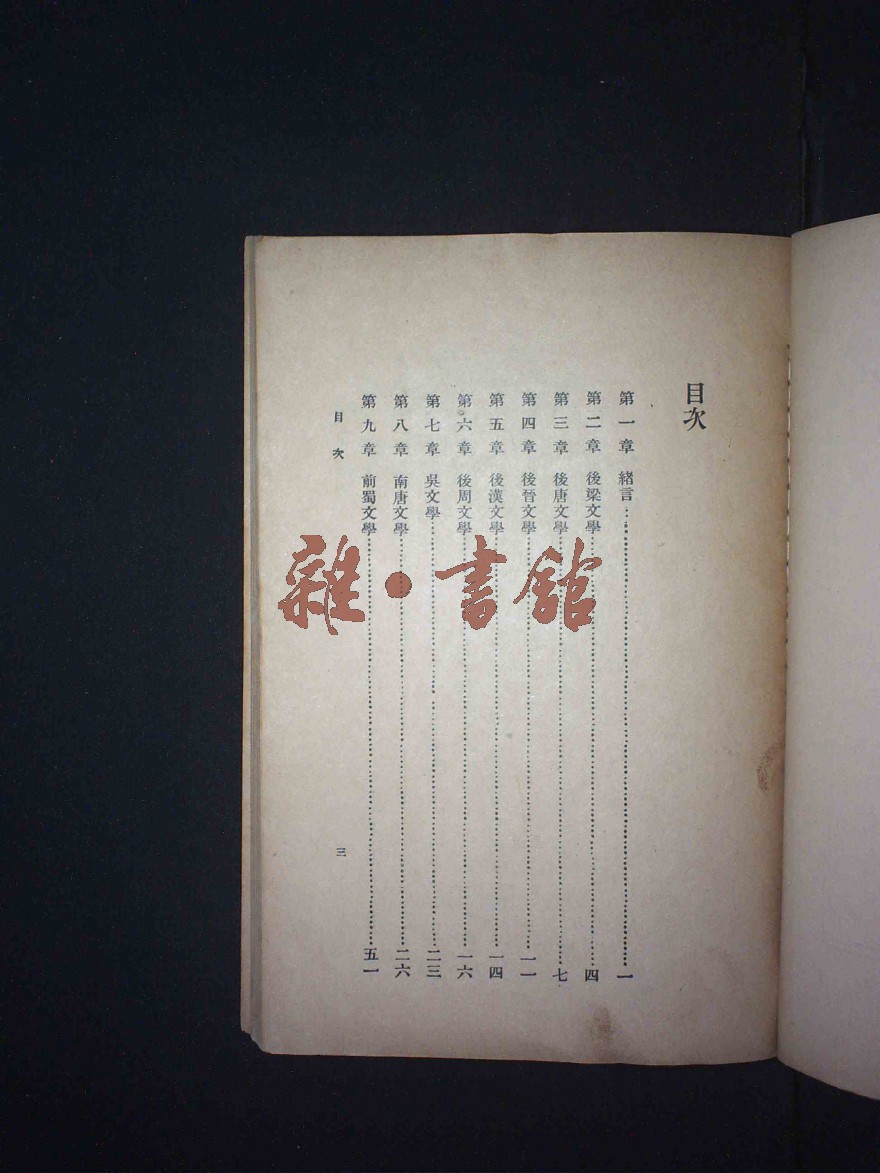 目次
第一章 緒言……一
第二章 後梁文學……四
第三章 後唐文學……七
第四章 後晉文學……一一
第五章 後漢文學……一四
第六章 後周文學……一六
第七章 吳文學……二三
第八章 南唐文學……二六
第九章 前蜀文學……五一
目次
三
雜·書館